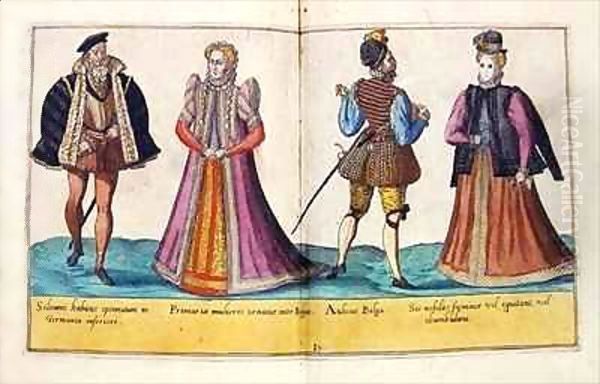 habitus optimatum in
Germania inferiori.
Primariae mulieres ornatus inter Belgas
Aulicus Belga
Sic nobiles feminae vel equitant, vel
NiceArtGallery